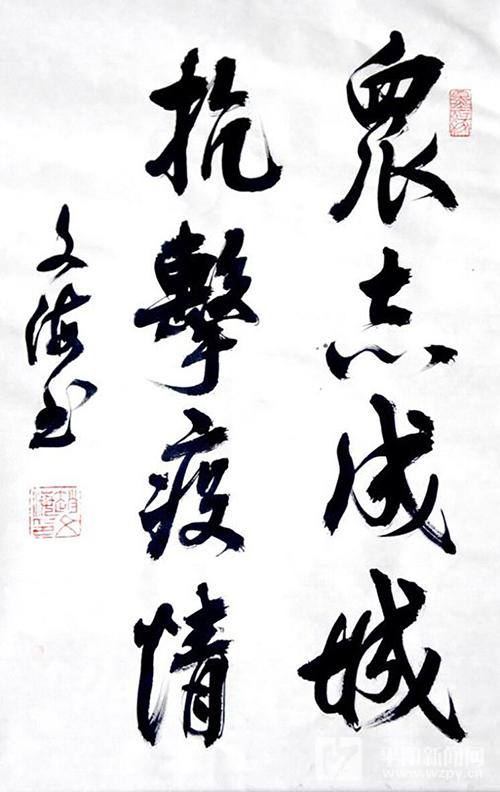 眾志成城
抗擊疫情
文海书
平阳新闻网
www.wzpy.cn